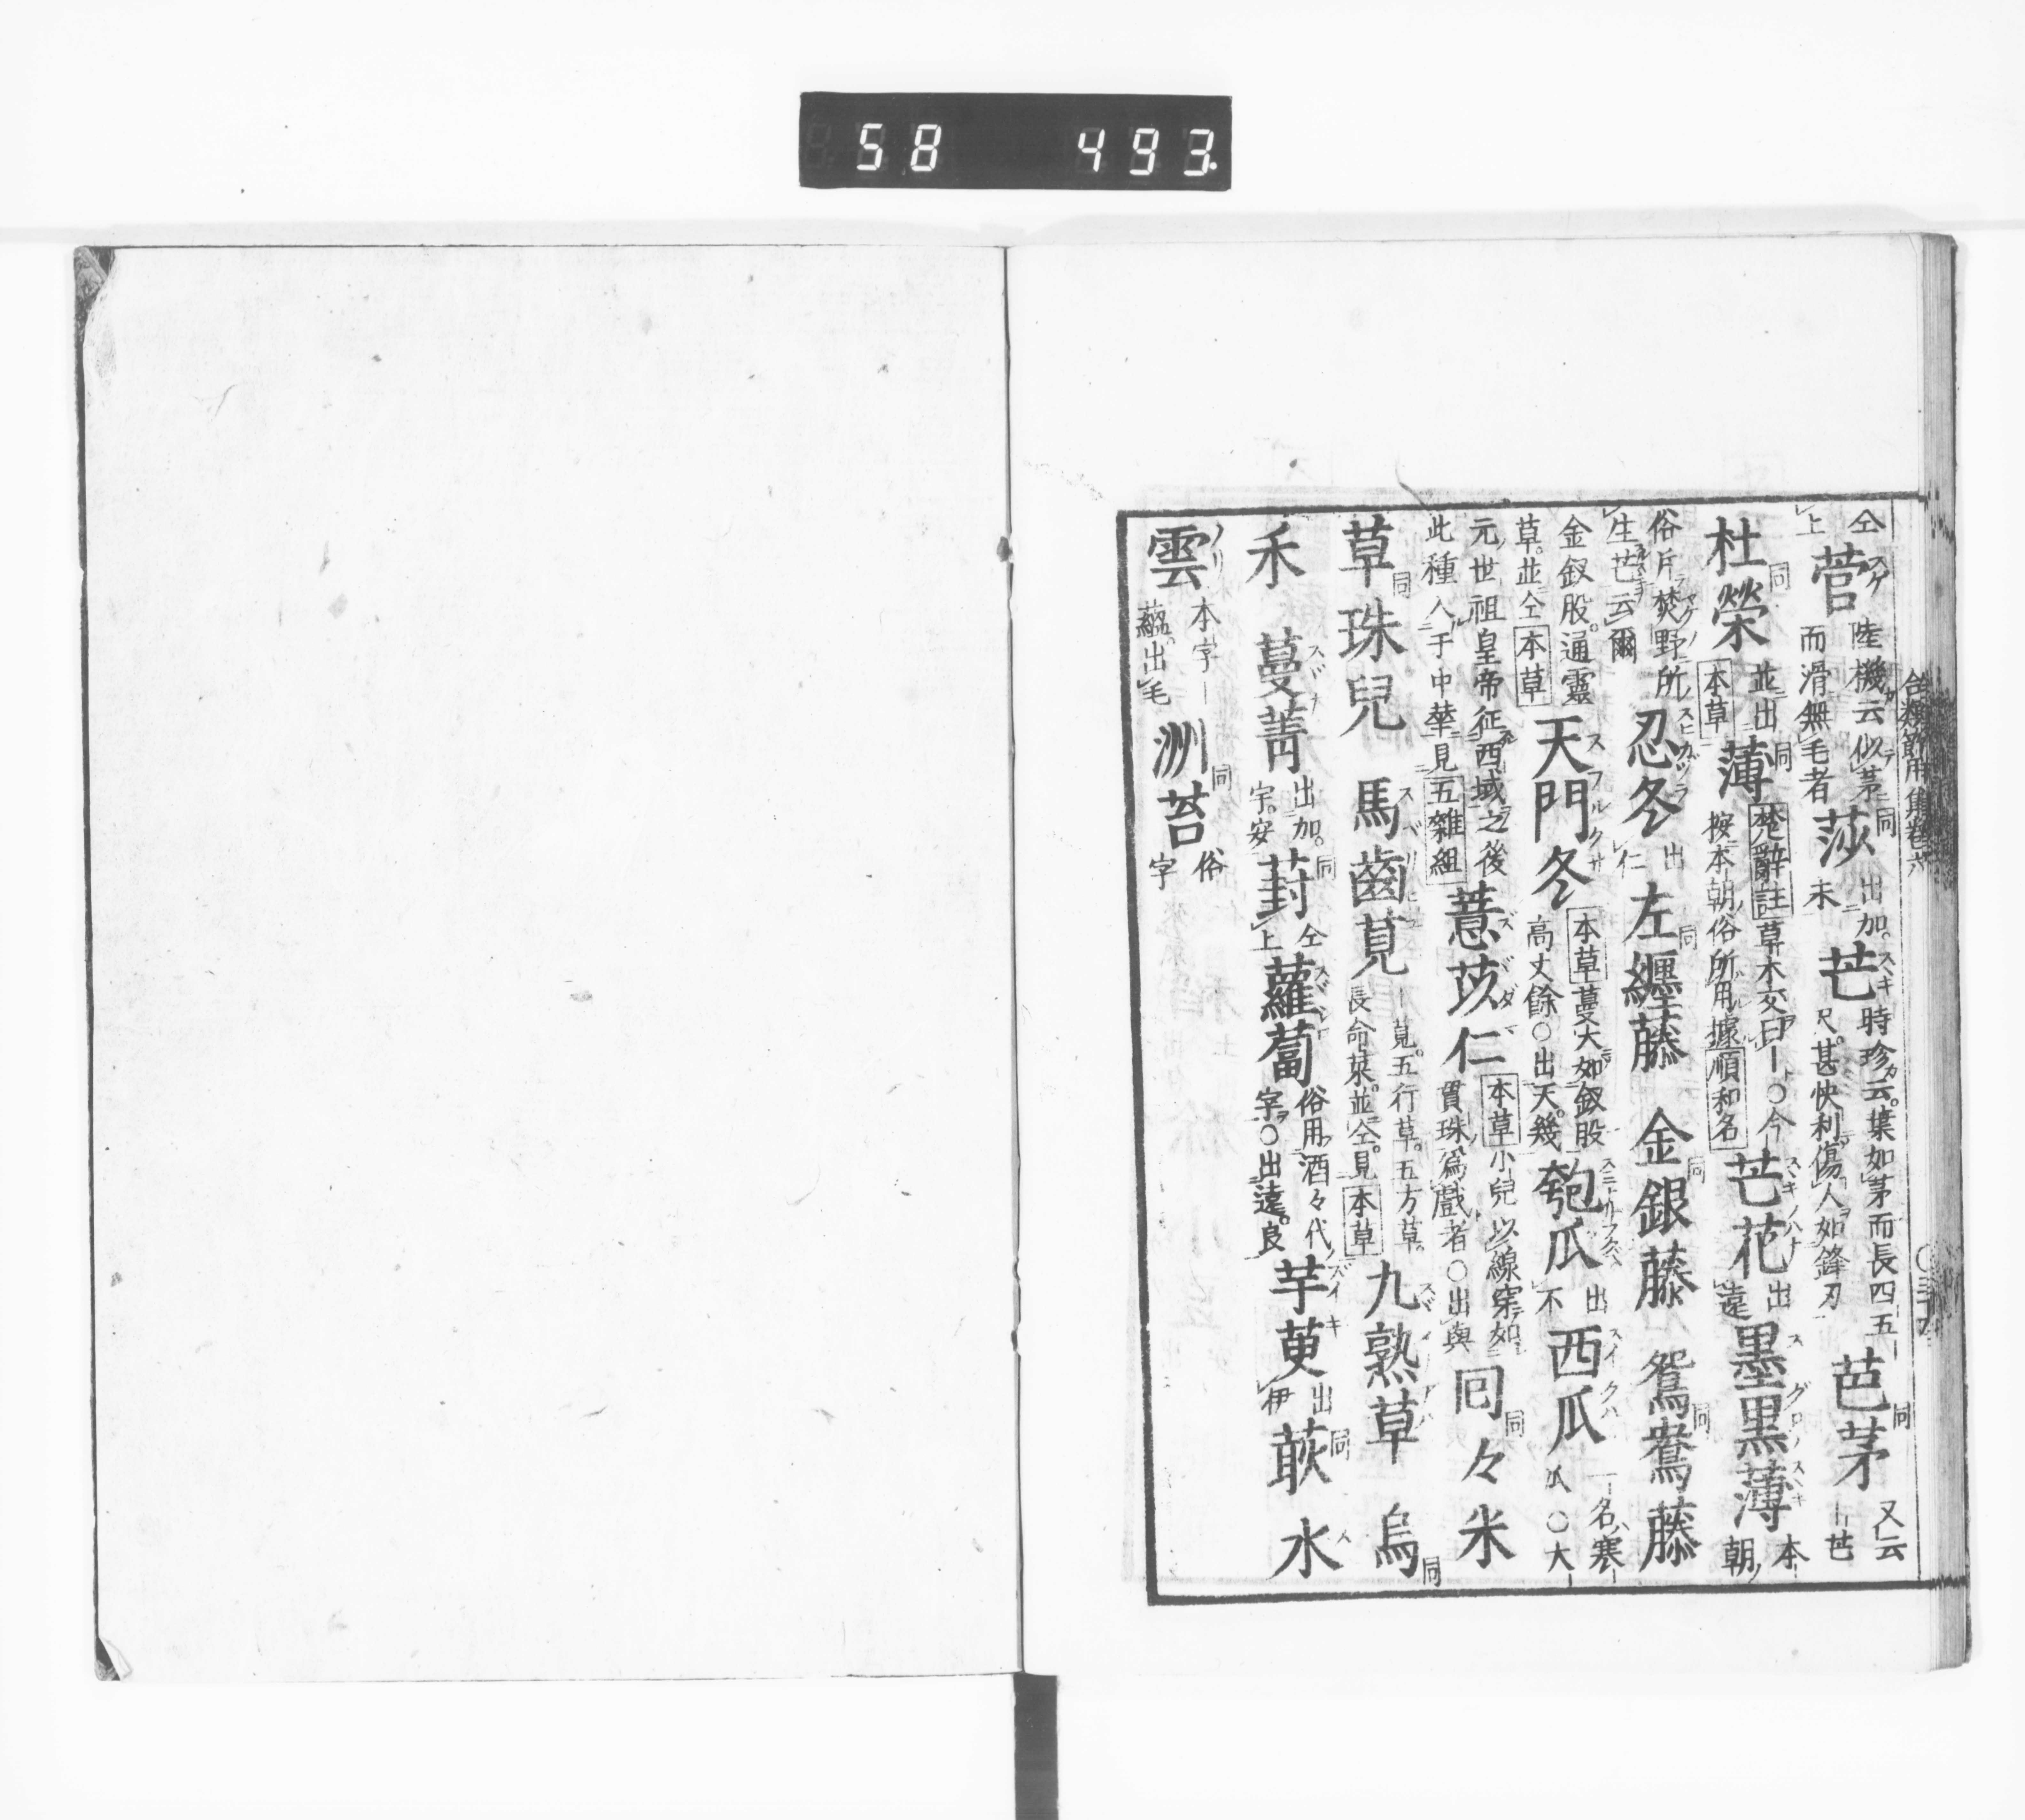 58 493.
合類節用集卷六
仝上 菅 陸機云似茅而滑無毛者 莎 同 出加。未 芒 時珍云。葉如茅而長四五尺。甚快利傷人如鋒刃 芭茅 同 又云芭
杜榮 同 並出本草 薄 同 楚辭註草木交曰ー○今按本朝俗所用據順和名 芒花 出遠 墨黒薄 本朝ノ
俗斥焚野所生芒云爾 忍冬 出仁 左纏藤 同 金銀藤 同 鴛鴦藤 同
金釵股。通靈草。並仝本草 天門冬 本草蔓大如釵股高丈餘○出天。幾 匏瓜 出不 西瓜 一名寒瓜○大
元世祖皇帝征西域之後此種入于中華見五雜組 薏苡仁 本草小兒以線穿如貫珠爲戲者○出與 囘々米 同
草珠兒 同 馬齒莧 ー莧。五行草。五方草。長命菜。並仝。見本草 九熟草 烏 同
禾 蔓菁 出加。宇。安 葑 同 仝上 蘿蔔 俗用酒々代字○出遠。良 芋莄 出伊 䓴 同 水
雲 本字ー蘊。出毛 洲苔 同 俗字